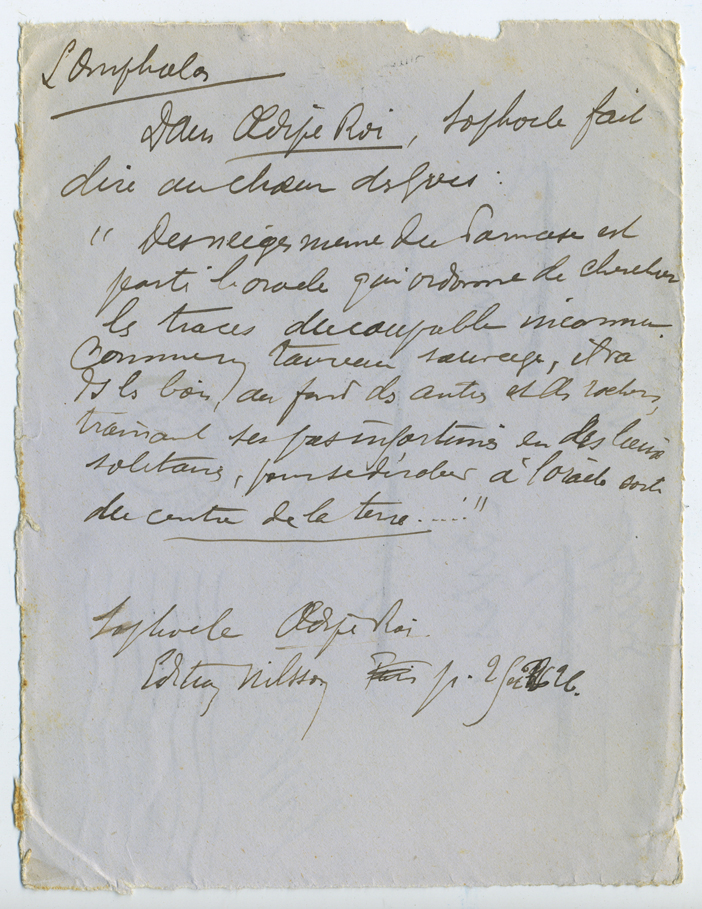 L'Omphalos
Dans Œdipe Roi, Sophocle fait
dire au chœur des Grecs :
" Des neiges meme du Parnasse est
parti l'oracle qui ordonne de chercher
les traces du coupable inconnu.
Comme un taureau sauvage, il va
ds les bois, au fond des antres et des rochers,
trainant ses pas infortunés en des lieux
solitaires, pour se dérober à l'oracle sorti
du centre de la terre....."
Sophocle Œdipe Roi.
Edition Nilsson p. 25 26.